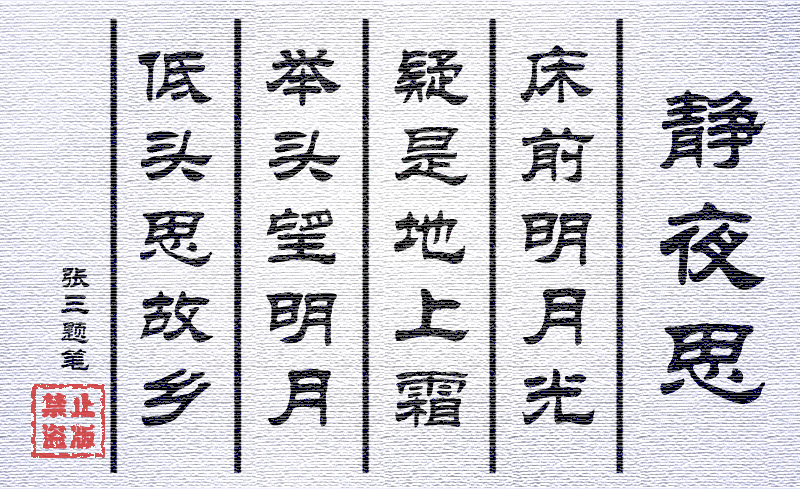 静夜思
床前明月光
疑是地上霜
举头望明月
低头思故乡
张三题笔
禁止
盗版